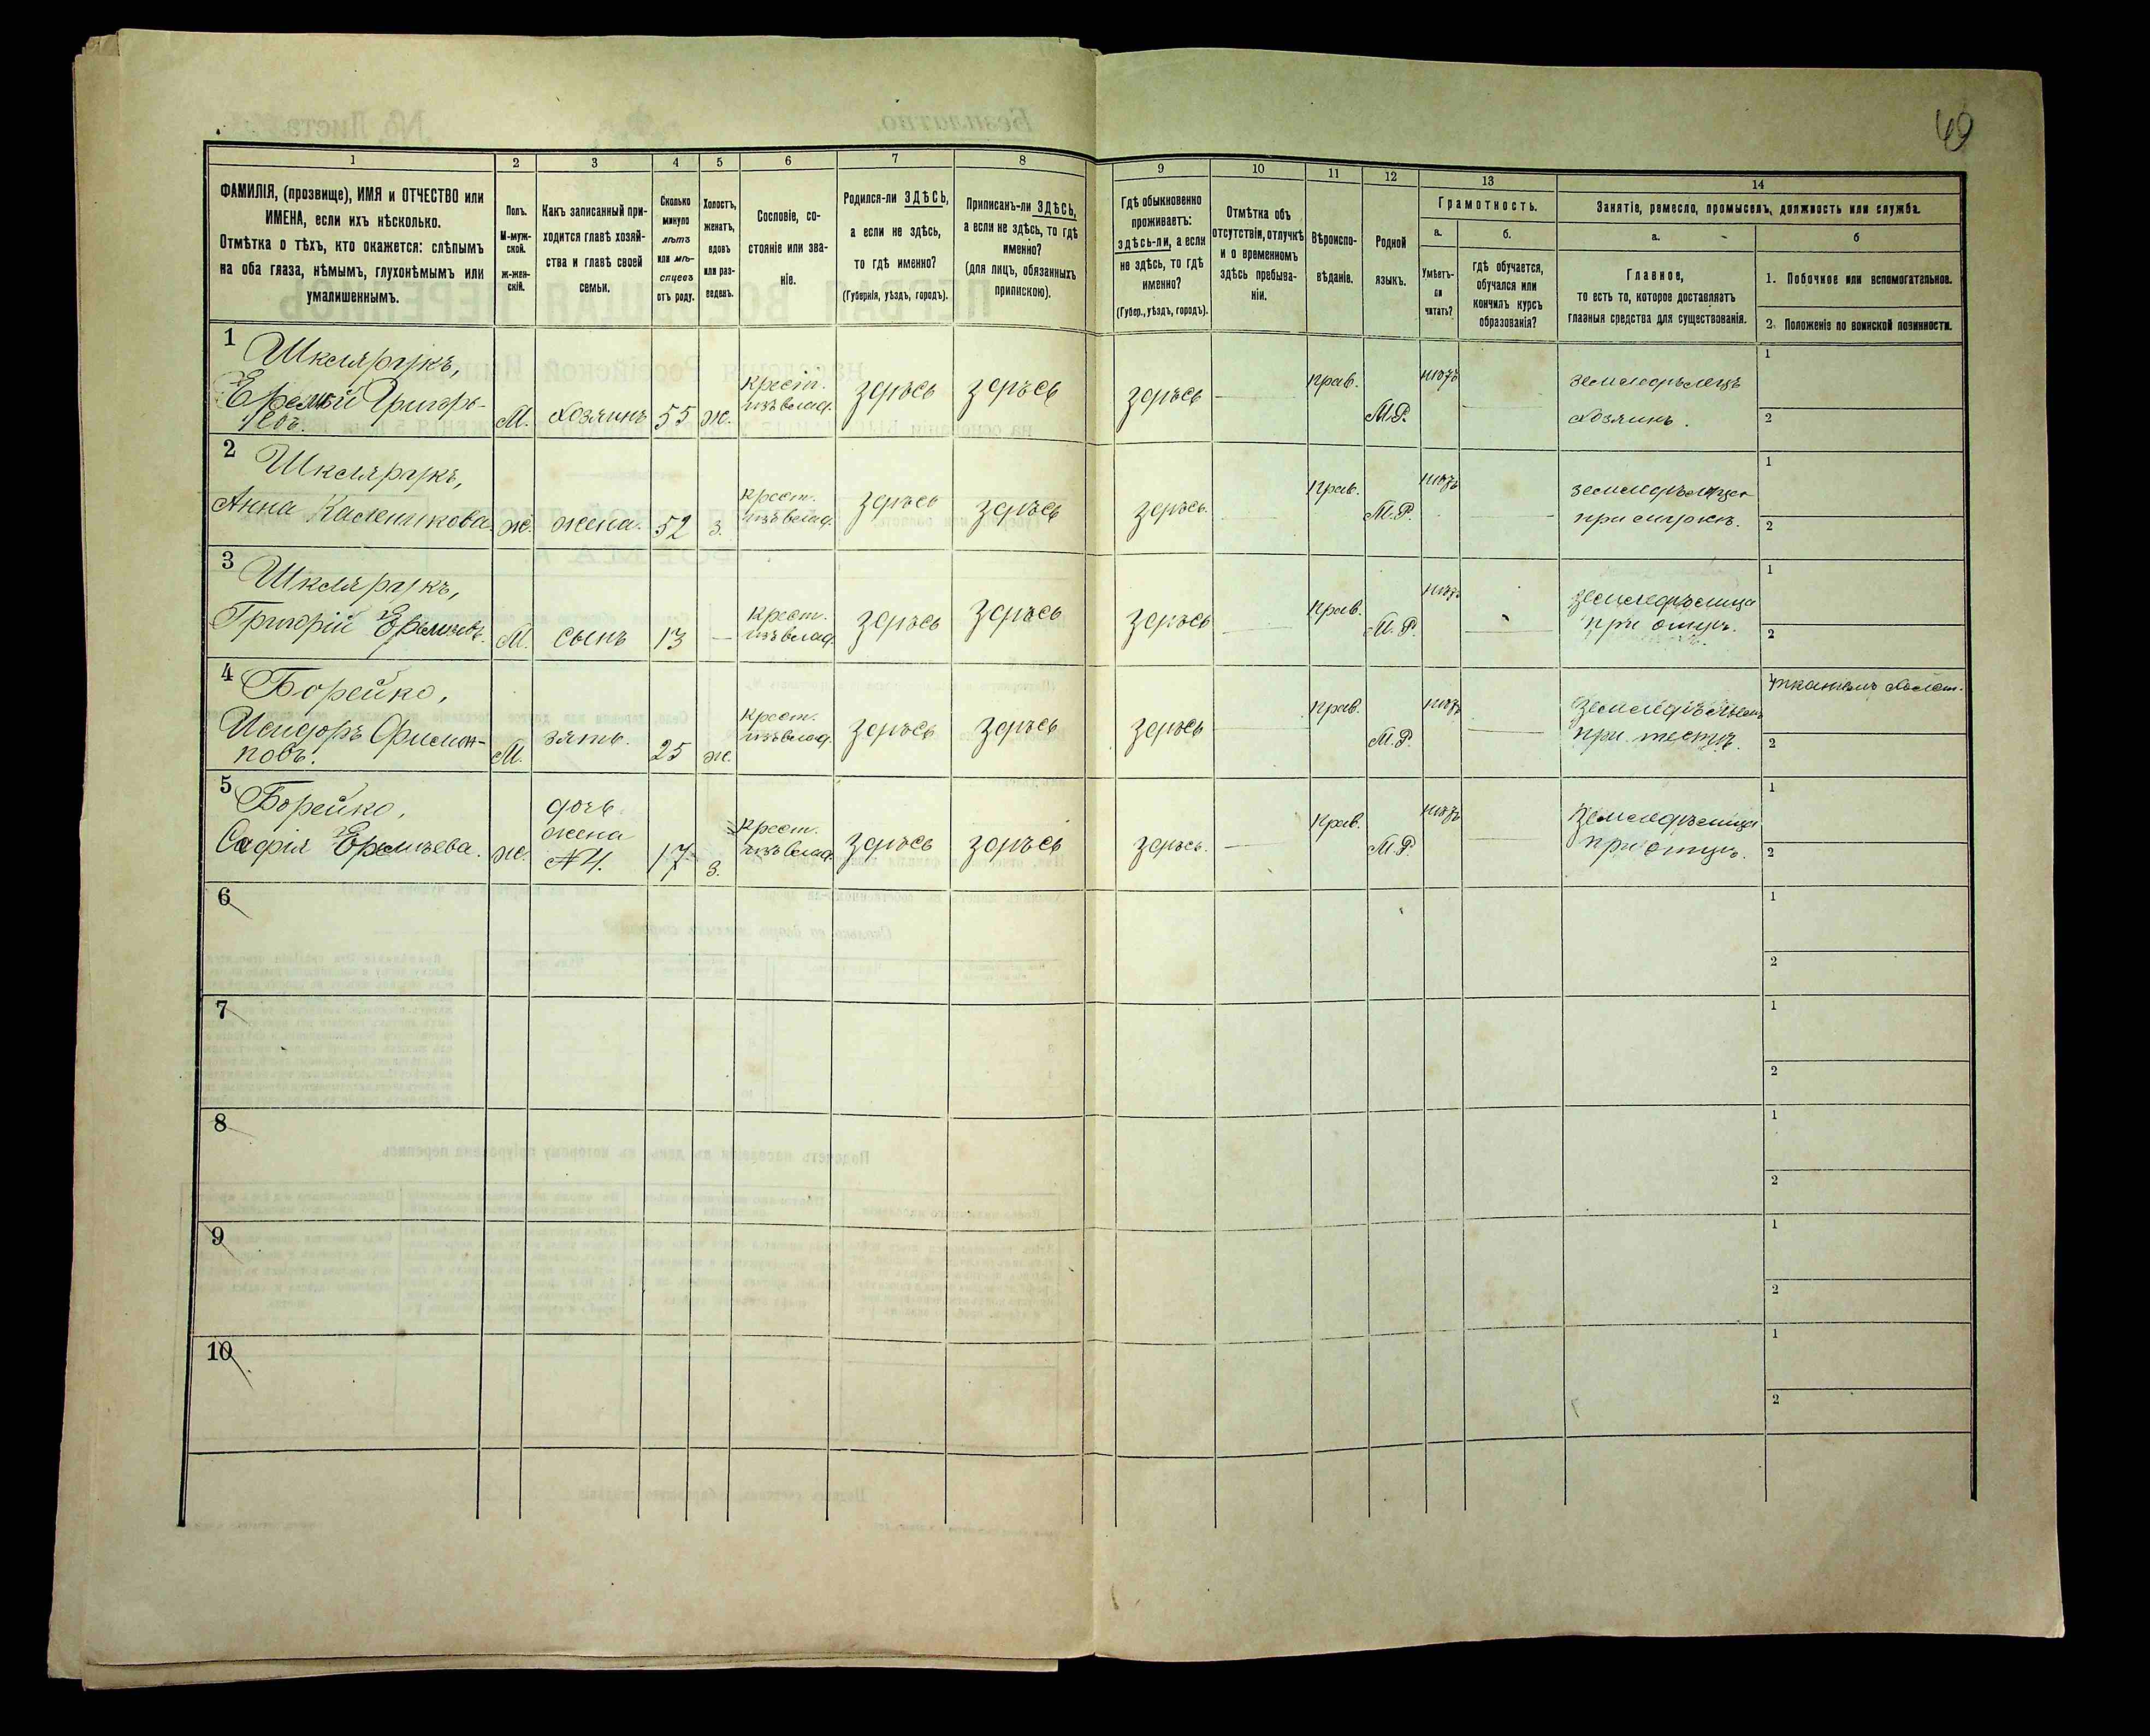 60
1 2 3 4 5 6 7 8 9 10 11 12 13 14
ФАМИЛІЯ, (прозвище), ИМЯ и ОТЧЕСТВО или
ИМЕНА, если ихъ нѣсколько.
Отмѣтка о тѣхъ, кто окажется: слѣпымъ
на оба глаза, нѣмымъ, глухонѣмымъ или
умалишеннымъ.
Полъ.
М-муж-
ской.
ж-жен-
скій.
Какъ записанный при-
ходится главѣ хозяй-
ства и главѣ своей
семьи.
Сколько
минуло
лѣтъ
или мѣ-
сяцевъ
отъ роду.
Холостъ,
женатъ,
вдовъ
или раз-
веденъ.
Сословіе, со-
стояніе или зва-
ніе.
Родился-ли ЗДѢСЬ,
а если не здѣсь,
то гдѣ именно?
(Губернія, уѣздъ, городъ).
Приписанъ-ли ЗДѢСЬ,
а если не здѣсь, то гдѣ
именно?
(для лицъ, обязанныхъ
припискою).
Гдѣ обыкновенно
проживаетъ:
здѣсь-ли, а если
не здѣсь, то гдѣ
именно?
(Губер., уѣздъ, городъ).
Отмѣтка объ
отсутствіи, отлучкѣ
и о временномъ
здѣсь пребыва-
ніи.
Вѣроиспо-
вѣданіе.
Родной
языкъ.
Грамотность.
а.
Умѣетъ-
ли
читать?
б.
гдѣ обучается,
обучался или
кончилъ курсъ
образованія?
Занятіе, ремесло, промыселъ, должность или служба.
а.
Главное,
то есть то, которое доставляетъ
главныя средства для существованія.
б
1. Побочное или вспомогательное.
2. Положеніе по воинской повинности.
1
Шкляракъ,
Еремѣй Григорь-
евъ.
М. хозяинъ 55 ж.
крест.
изъ влад.
здѣсь здѣсь здѣсь
прав. М.Р. нѣтъ
земледѣлецъ
хозяинъ.
1
2
2
Шкляракъ,
Анна Каленикова
ж. жена. 52 з.
крест.
изъ влад.
здѣсь здѣсь здѣсь.
прав. М.Р. нѣтъ
при мужѣ.
1
2
3
Шкляракъ,
Григорій Еремѣевъ.
М. сынъ 13 —
крест.
изъ влад.
здѣсь здѣсь здѣсь
прав. М.Р. нѣтъ
при отцѣ.
1
2
4
Борейко,
Исидоръ Филимо-
новъ.
М. зять. 25 ж.
крест.
изъ влад.
здѣсь здѣсь здѣсь
прав. М.Р. нѣтъ
при тестѣ.
2
5
Борейко,
Софія Еремѣева.
ж.
дочь
жена
№4.
17 з.
крест.
изъ влад.
здѣсь здѣсь здѣсь.
прав. М.Р. нѣтъ
при отцѣ.
1
2
6
1
2
7
1
2
8
1
2
9
1
2
10
1
2